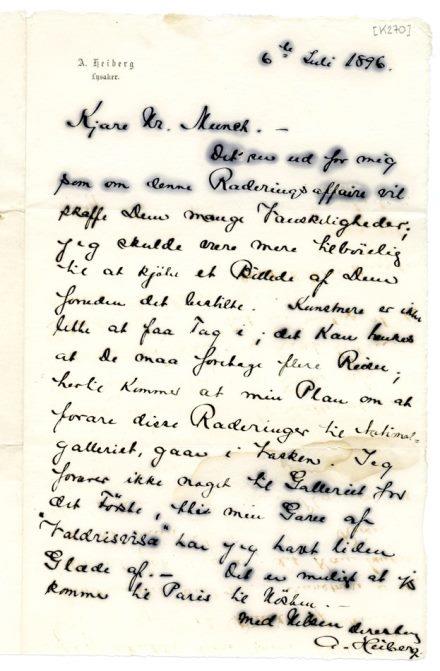 [K270]
A. Heiberg
Lysaker.
6te Juli 1896.
Kjære Hr. Munch. —
Det ser ud for mig
som om denne Raderingsaffaire vil
skaffe Dem mange Vanskeligheder;
jeg skulde være mere tilbøielig
til at kjøbe et Billede af Dem
foruden det bestilte. Kunstnere er ikke
lette at faa Tag i; det kan hændes
at De maa foretage flere Reiser;
hertil kommer at min Plan om at
forære disse Raderinger til National-
galleriet, gaar i Vasken. Jeg
forærer ikke noget til Galleriet for
det Første, thi min Gave af
"Valdrisvisa" har jeg havt liden
Glæde af. — Det er muligt at jeg
kommer til Paris til Høsten. —
med Hilsen
A. Heiberg.